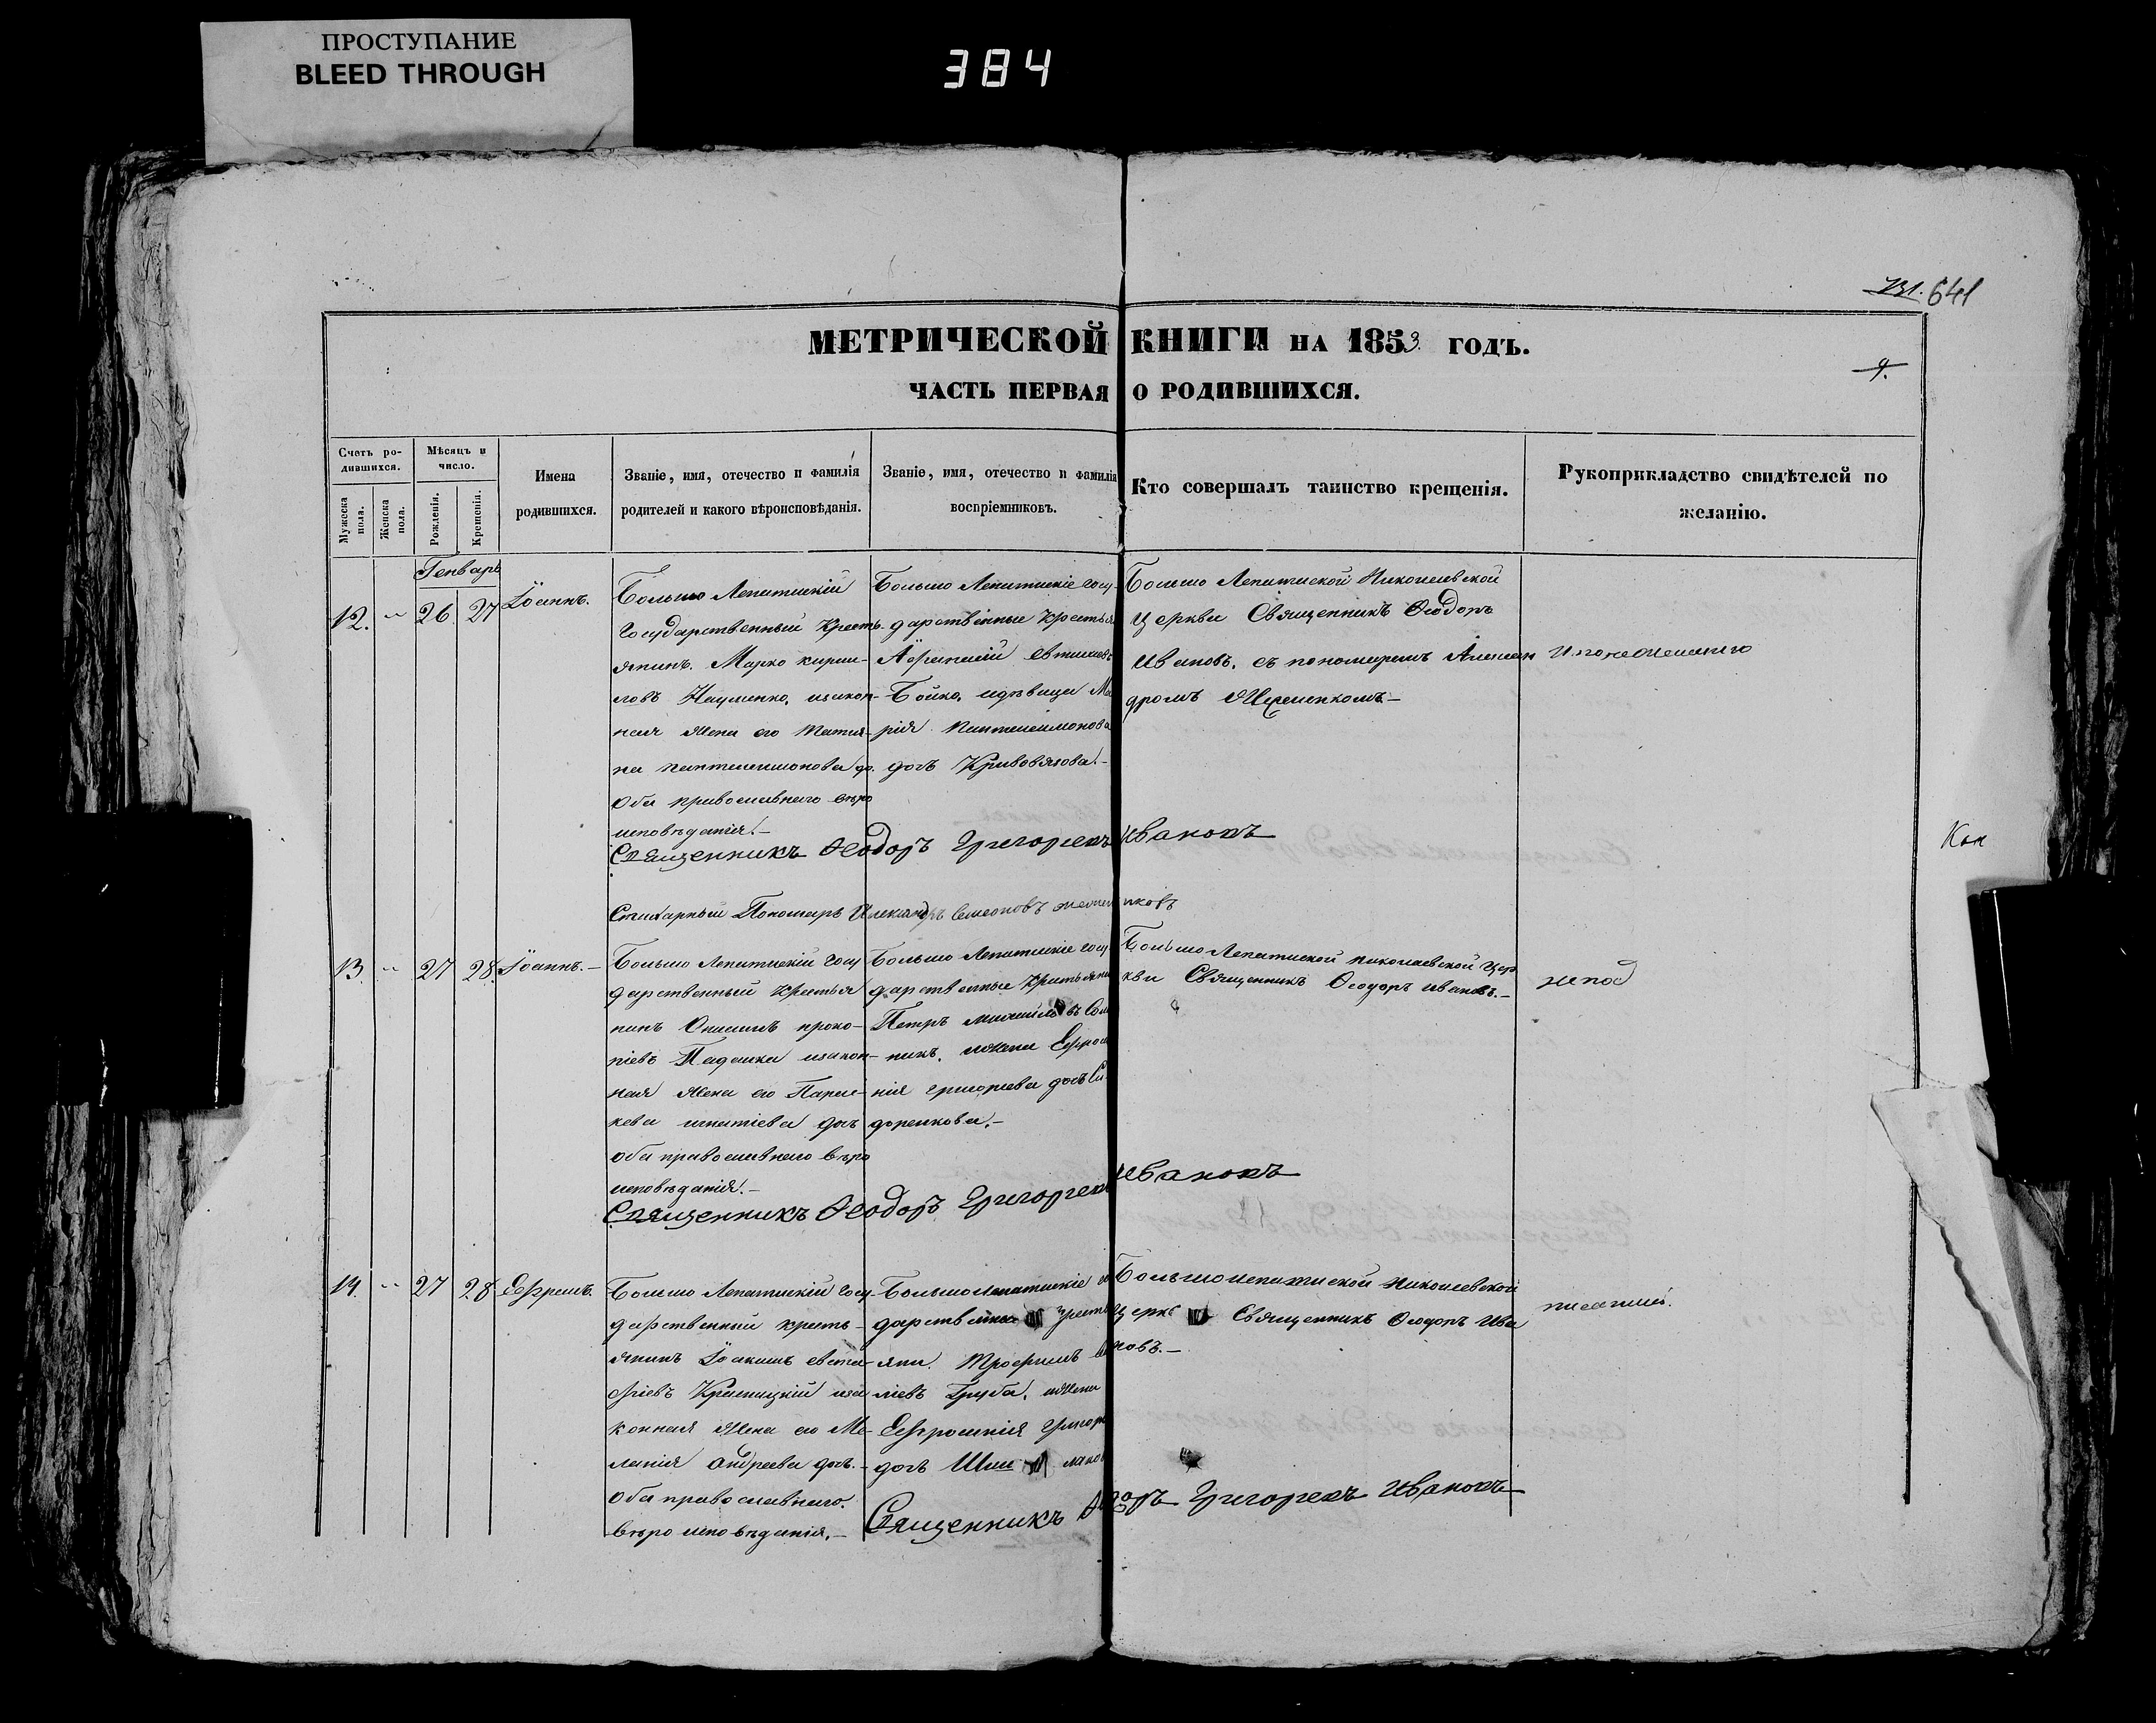 ПРОСТУПАНИЕ
BLEED THROUGH
384
731. 641
МЕТРИЧЕСКОЙ КНИГИ НА 1853 ГОДЪ.
9.
ЧАСТЬ ПЕРВАЯ О РОДИВШИХСЯ.
Счетъ родившихся.
Мужеска пола.
Женска пола.
Мѣсяцъ и число.
Рожденія.
Крещенія.
Имена родившихся.
Званіе, имя, отечество и фамилія
родителей и какого вѣроисповѣданія.
Званіе, имя, отечество и фамилія
воспріемниковъ.
Кто совершалъ таинство крещенія.
Рукоприкладство свидѣтелей по
желанію.
Генварь
12. 26 27 Іоаннъ.
Больше Лепатискій
государственный кресть-
янинъ. Марко кири-
ловъ Науменко, изакон-
ная жена его Татия-
на пантелеимонова до.
оба православнаго вѣро
исповѣданія.—
Больше Лепатискіе госу-
дарственные крестья
Бойко, идѣвица Ма
рія Пантелеимонова
дочь Кривовязова.—
Больше Лепатиской Николаевской
церкви Священникъ Ѳеодоръ
Ивановъ. съ пономаремъ Алексан
дромъ
Священникъ Ѳеодоръ Григорьевъ Ивановъ
Стихарный Пономарь Александръ Семеоновъ
13. 27 28. Іоаннъ.—
Больше Лепатискій госу
дарственный крестья
нинъ Онисимъ проко-
піевъ изакон-
ная жена его Парас-
кева игнатіева дочь
оба православнаго вѣро
исповѣданія.—
Больше Лепатискіе госу-
дарственные крестьяни
Петръ михаиловъ
никъ, ижена Ефрос
нія григорьева дочь Си-
доренкова.—
Больше Лепатиской николаевской цер
кви Священникъ Ѳеодоръ ивановъ.—
непод
Священникъ Ѳеодоръ Григорьевъ Ивановъ
14. 27 28 Ефремъ.
Больше Лепатискій госу-
дарственный кресть-
янинъ Іоакимъ евста-
фіевъ Крыницкій иза
конная жена его Ме-
ланія Андреева дочь.—
оба православнаго.
вѣро исповѣданія.—
Больше Лепатискіе го
дарственные кресть
яни. Трофимъ
ліевъ Груба, ижена
Ефросинія Григорь
дочь
Больше лепатиской николаевской
церкв Священникъ Ѳеодоръ Ива
новъ.—
писатый.
Священникъ Ѳеодоръ Григорьевъ Ивановъ